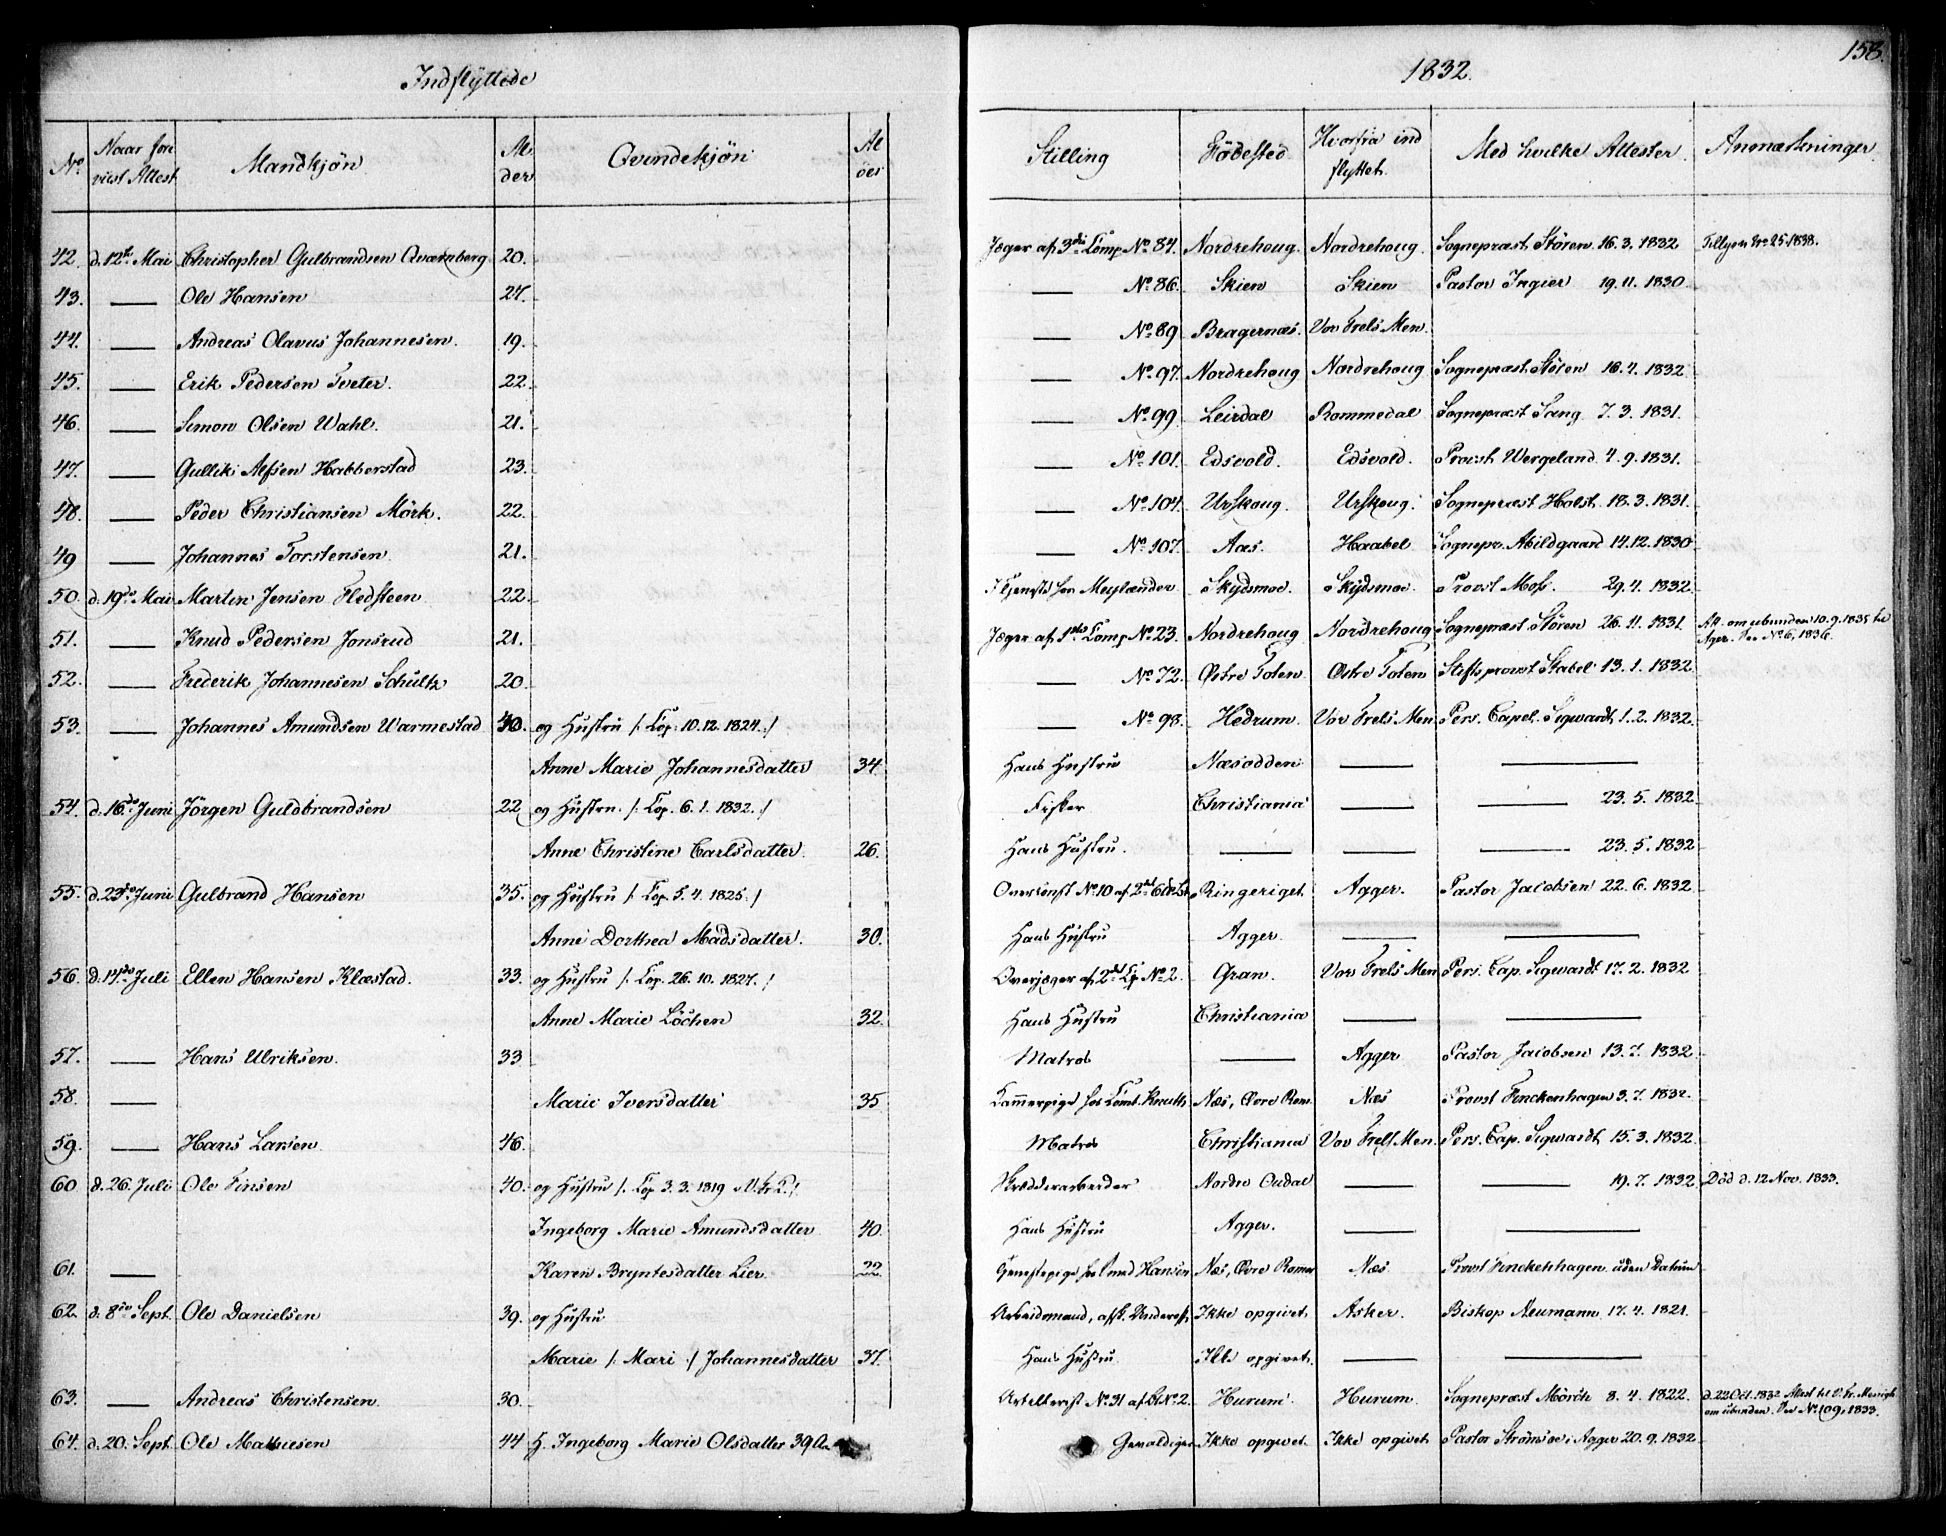 Indflÿttede
1832.
158.
No. Naar foreviist Attest Mandkjön Alder Qvindekjön Alder Stilling Födested Hvorfra indflyttet Med hvilke Attester Anmærkninger
42. d. 12te Mai Christopher Gulbrandsen Qværnberg 20. Jæger af 3die Comp No 84. Nordrehoug. Nordrehoug. Sognepræst Stören 16.3.1832 Tillysn No 25 1838.
43. — Ole Hansen 27. — No. 86. Skien Skien Pastor Ingier 19.11.1830
44. — Andreas Olavus Johannesen. 19. — No. 89 Bragernæs. Vor Frels Men.
45. — Erik Pedersen Tveter. 22. — No. 97. Nordrehoug Nordrehoug Sognepræst Stören 16.4.1832
46. — Simon Olsen Wahl. 21. — No. 99 Leirdal Rommedal Sognepræst Sang 7.3.1831.
47. — Gullik Alfsen Habberstad 23. — No. 101. Edsvold. Edsvold. Provst Wergeland 4.9.1831.
48. — Peder Christiansen Mörk. 22. — No. 104. Urskoug. Urskoug. Sognepræst Holst 18.3.1831.
49 — Johannes Torstensen 21. — No. 107. Aas. Haabel Sognepr. Abildgaard 14.12.1830
50. d. 19de Mai Martin Jensen Fledsteen 22. I Tjeneste hos Meylænder Skydsmoe. Skydsmoe. Provst Moss. 29.4.1832
51. — Knud Pedersen Jonsrud 21. Jæger af 1ste Comp No 23. Nordrehoug Nordrehoug Sognepræst Stören 26.11.1831 Att. om ubunden 10.9.1835 til
Ager. See No 6, 1836.
52. — Frederik Johannesen Schultz 20. — No. 72. Østre Toten Østre Toten Stiftsprovst Stabel 13.1.1832
53. — Johannes Amundsen Warmestad 40. og Hustru /: Cop: 10.12.1824. :/ — No. 98. Hedrum. Vor Frels Men. Pers. Capel. Sigwardt 1.2.1832.
Anne Marie Johannesdatter 34 Hans Hustru Næsodden — —
54. d. 16de Juni Jörgen Guldbrandsen 22 og Hustru. /: Cop. 6.1.1832. :/ Fisker Christiania — — 23.5.1832
Anne Christine Carlsdatter. 26. Hans Hustru. — — — 23.5.1832
55. d. 23de Juni Gulbrand Hansen 35. og Hustru /: Cop. 5.4.1825 :/ Overconst No. 10 af 2det Ringeriget Agger. Pastor Jacobsen 22.6.1832
Anne Dorthea Madsdatter. 30. Hans Hustru Agger. — —
56. d. 14de Juli Ellen Hansen Klæstad. 33. og Hustru /: Cop. 26.10.1827. :/ Overjæger af 2det Cp No 2. Gran. Vor Frels Men Pers. Cap. Sigwardt 17.2.1832
Anne Marie Löchen 32. Hans Hustru Christiania — —
57. — Hans Ulriksen. 33 Matros — Agger Pastor Jacobsen 13.7.1832
58. — Marie Iversdatter 35 Kammerpige hos Comt. Knuth Næs, Øvre Rom. Næs Provst Finckenhagen 3.7.1832.
59. — Hans Larsen 46. Matros Christiania Vor Frels Men. Pers. Cap. Sigwardt 15.3.1832.
60 d. 26. Juli Ole Finsen 40. og Hustru /: Cop 3.3.1819 i V. Fr. K. :/ Skrædderarbeider Nordre Oudal — — 19.7.1832 Död d. 12 Nov. 1833.
Ingeborg Marie Amundsdatter 40. Hans Hustru Agger. — —
61. — Karen Bryntesdatter Lier 22. Tjenestepige hos Hansen Næs, Øvre Romer Næs Provst Finckenhagen uden Datum
62. d. 8de Sept. Ole Danielsen 39. og Hustru Arbeidsmand, afsk. Ikke opgivet Asker. Biskop Neumann 17.4.1821.
Marie /: Mari :/ Johannesdatter 37. Hans Hustru Ikke opgivet. — —
63. — Andreas Christensen. 30. Artellerist No. 31 af Bt No 2. Hurum Hurum. Sognepræst Mörch 8.4.1822. d. 22 Oct. 1832 Attest til V. Fr. Menigh
om ubunden. See No. 109, 1833.
64. d. 20. Sept. Ole Mathiesen 44 H. Ingeborg Marie Olsdatter 39 Aar Gevaldiger Ikke opgivet. Ikke opgivet Pastor Strömsöe i Agger 20.9.1832